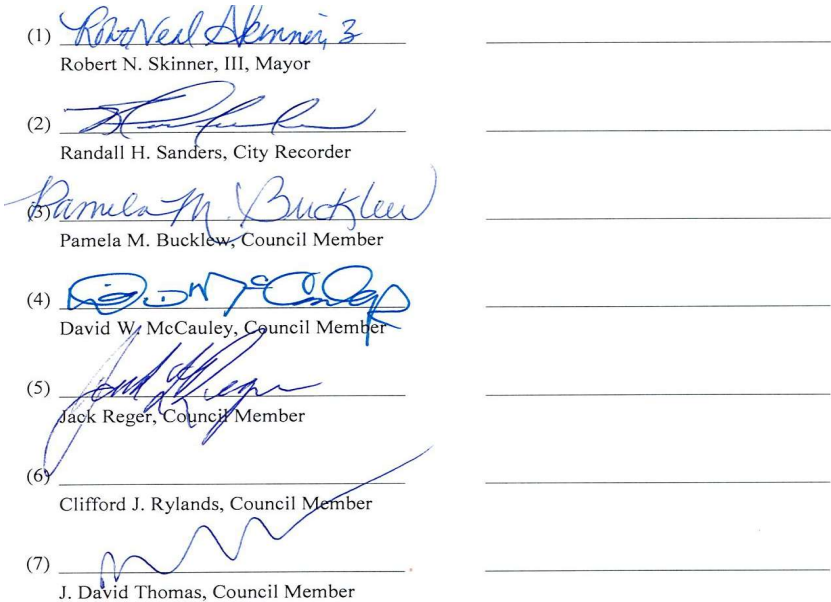 (1) Robt Neal Skinner, 3
Robert N. Skinner, III, Mayor
(2)
Randall H. Sanders, City Recorder
(3) Pamela M. Bucklew
Pamela M. Bucklew, Council Member
(4) David W McCauley
David W. McCauley, Council Member
(5) Jack Reger
Jack Reger, Council Member
(6)
Clifford J. Rylands, Council Member
(7)
J. David Thomas, Council Member